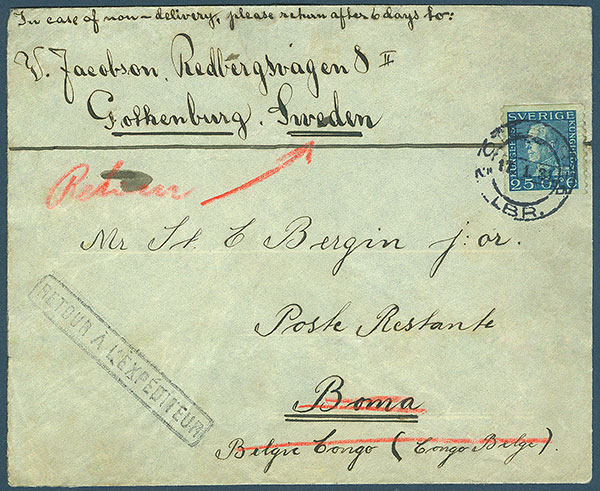 In case of non-delivery, please return after 6 days to:
W. Jacobson, Redbergsvägen 8 II
Gothenburg. Sweden
SVERIGE
25
LBR.
Retour
Mr St. C Bergin j:or.
Poste Restante
RETOUR À L'EXPÉDITEUR
Boma
Belgic Congo (Congo Belge).